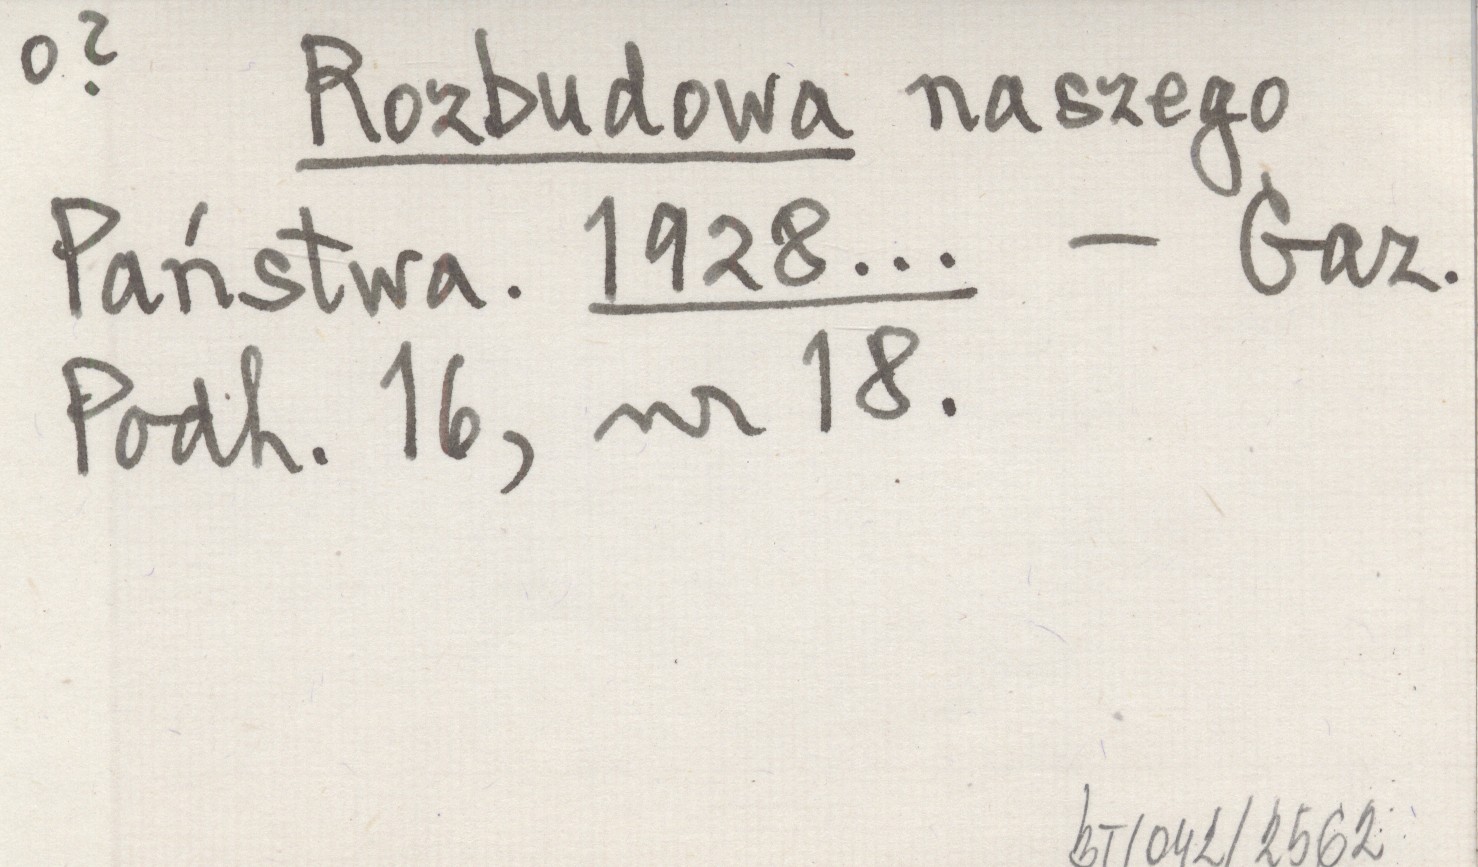 o?
Rozbudowa naszego
Państwa. 1928... – Gaz.
Podh. 16, nr 18.
bT/042/2562